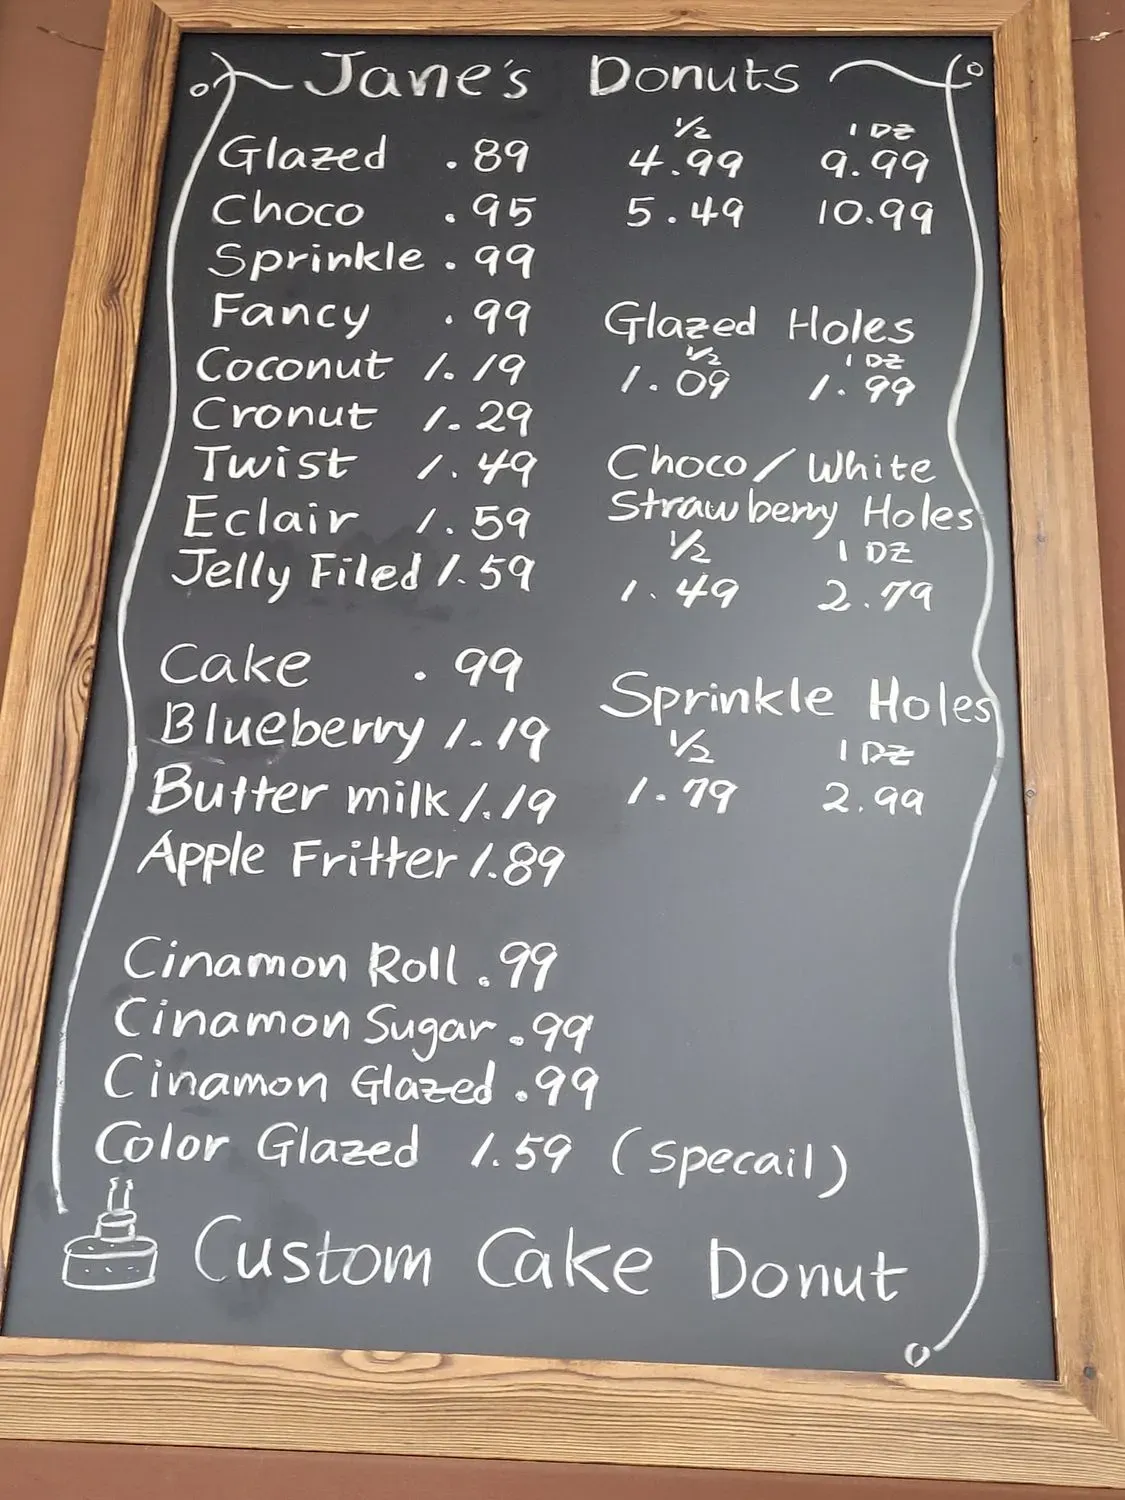 Jane's Donuts
½ 1 DZ
Glazed .89 4.99 9.99
Choco .95 5.49 10.99
Sprinkle .99
Fancy .99
Coconut 1.19
Cronut 1.29
Twist 1.49
Eclair 1.59
Jelly Filed 1.59
Cake .99
Blueberry 1.19
Butter milk 1.19
Apple Fritter 1.89
Cinamon Roll .99
Cinamon Sugar .99
Cinamon Glazed .99
Color Glazed 1.59 (specail)
Glazed Holes
½ 1 DZ
1.09 1.99
Choco/White
Strawberry Holes
½ 1 DZ
1.49 2.79
Sprinkle Holes
½ 1 DZ
1.79 2.99
Custom Cake Donut